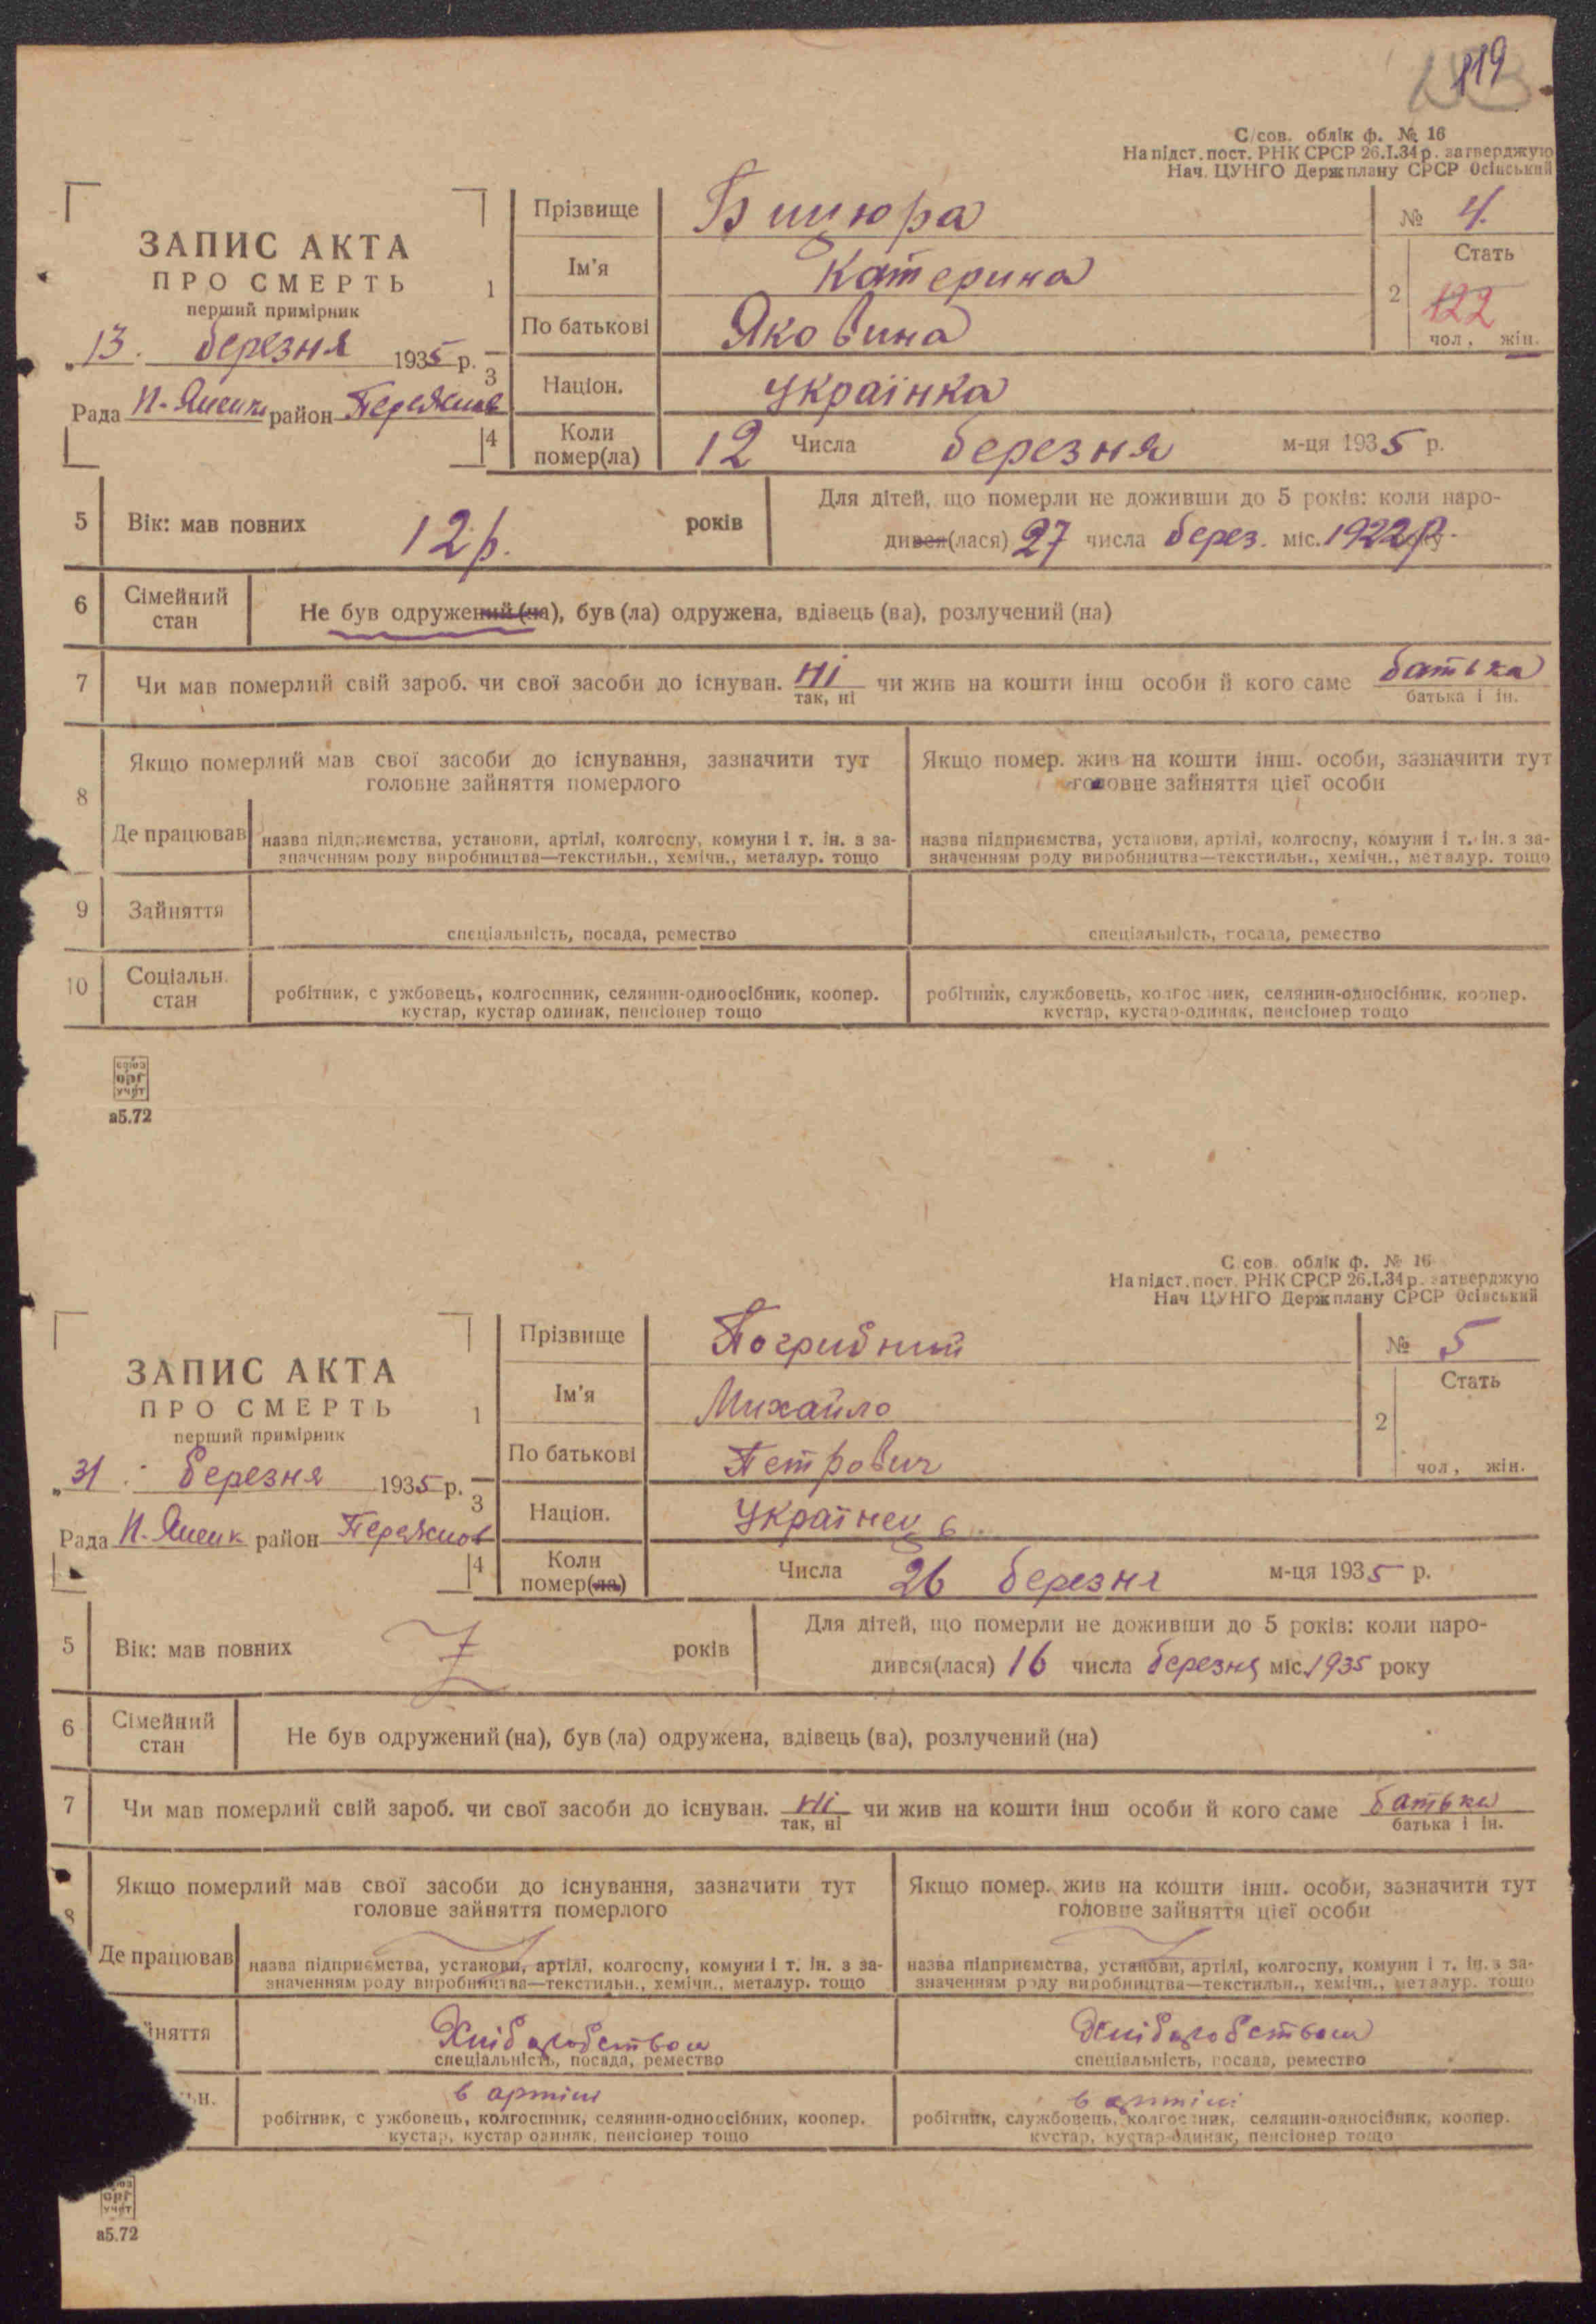 119
С/сов. облік ф. № 16
На підст. пост. РНК СРСР 26.I.34 р. затверджую
Нач. ЦУНГО Держплану СРСР Осінський
ЗАПИС АКТА
ПРО СМЕРТЬ
перший примірник
„13. березня 1935 р.
Рада район
1 Прізвище Бицюра
Ім'я Катерина
По батькові Яковина
№ 4.
2 Стать
122
чол, жін.
3 Націон. українка
4 Коли помер(ла) 12 Числа березня м-ця 1935 р.
5 Вік: мав повних 12 р. років
Для дітей, що померли не доживши до 5 років: коли наро-
дився(лася) 27 числа берез. міс. 1922 р.
6 Сімейний стан Не був одружений (на), був (ла) одружена, вдівець (ва), розлучений (на)
7 Чи мав померлий свій зароб. чи свої засоби до існуван. ні чи жив на кошти інш особи й кого саме батька
так, ні батька і ін.
8 Якщо померлий мав свої засоби до існування, зазначити тут
головне зайняття померлого
Якщо помер. жив на кошти інш. особи, зазначити тут
головне зайняття цієї особи
Де працював назва підприємства, установи, артілі, колгоспу, комуни і т. ін. з за-
значенням роду виробництва—текстильн., хемічн., металур. тощо
назва підприємства, установи, артілі, колгоспу, комуни і т. ін. з за-
значенням роду виробництва—текстильн., хемічн., металур. тощо
9 Зайняття
спеціальність, посада, ремество
спеціальність, посада, ремество
10 Соціальн. стан
робітник, с ужбовець, колгоспник, селянин-одноосібник, коопер.
кустар, кустар одинак, пенсіонер тощо
робітник, службовець, колгоспник, селянин-односібник, коопер.
кустар, кустар-одинак, пенсіонер тощо
союз
орг
учет
а5.72
С сов. облік ф. № 16
На підст. пост. РНК СРСР 26.I.34 р. затверджую
Нач ЦУНГО Держплану СРСР Осінський
ЗАПИС АКТА
ПРО СМЕРТЬ
перший примірник
„31. березня 1935 р.
Рада район
1 Прізвище Погрибний
Ім'я Михайло
По батькові Петрович
№ 5
2 Стать
чол, жін.
3 Націон. Українец
4 Коли помер(ла) Числа 26 березня м-ця 1935 р.
5 Вік: мав повних років
Для дітей, що померли не доживши до 5 років: коли наро-
дився(лася) 16 числа березня міс. 1935 року
6 Сімейний стан Не був одружений (на), був (ла) одружена, вдівець (ва), розлучений (на)
7 Чи мав померлий свій зароб. чи свої засоби до існуван. ні чи жив на кошти інш особи й кого саме батька
так, ні батька і ін.
8 Якщо померлий мав свої засоби до існування, зазначити тут
головне зайняття померлого
Якщо помер. жив на кошти інш. особи, зазначити тут
головне зайняття цієї особи
Де працював назва підприємства, установи, артілі, колгоспу, комуни і т. ін. з за-
значенням роду виробництва—текстильн., хемічн., металур. тощо
назва підприємства, установи, артілі, колгоспу, комуни і т. ін. з за-
значенням роду виробництва—текстильн., хемічн., металур. тощо
йняття Хліборобством Хліборобством
спеціальність, посада, ремество
спеціальність, посада, ремество
ьн. в артілі в артілі
робітник, с ужбовець, колгоспник, селянин-одноосібник, коопер.
кустар, кустар одинак, пенсіонер тощо
робітник, службовець, колгоспник, селянин-односібник, коопер.
кустар, кустар-одинак, пенсіонер тощо
орг
учет
а5.72